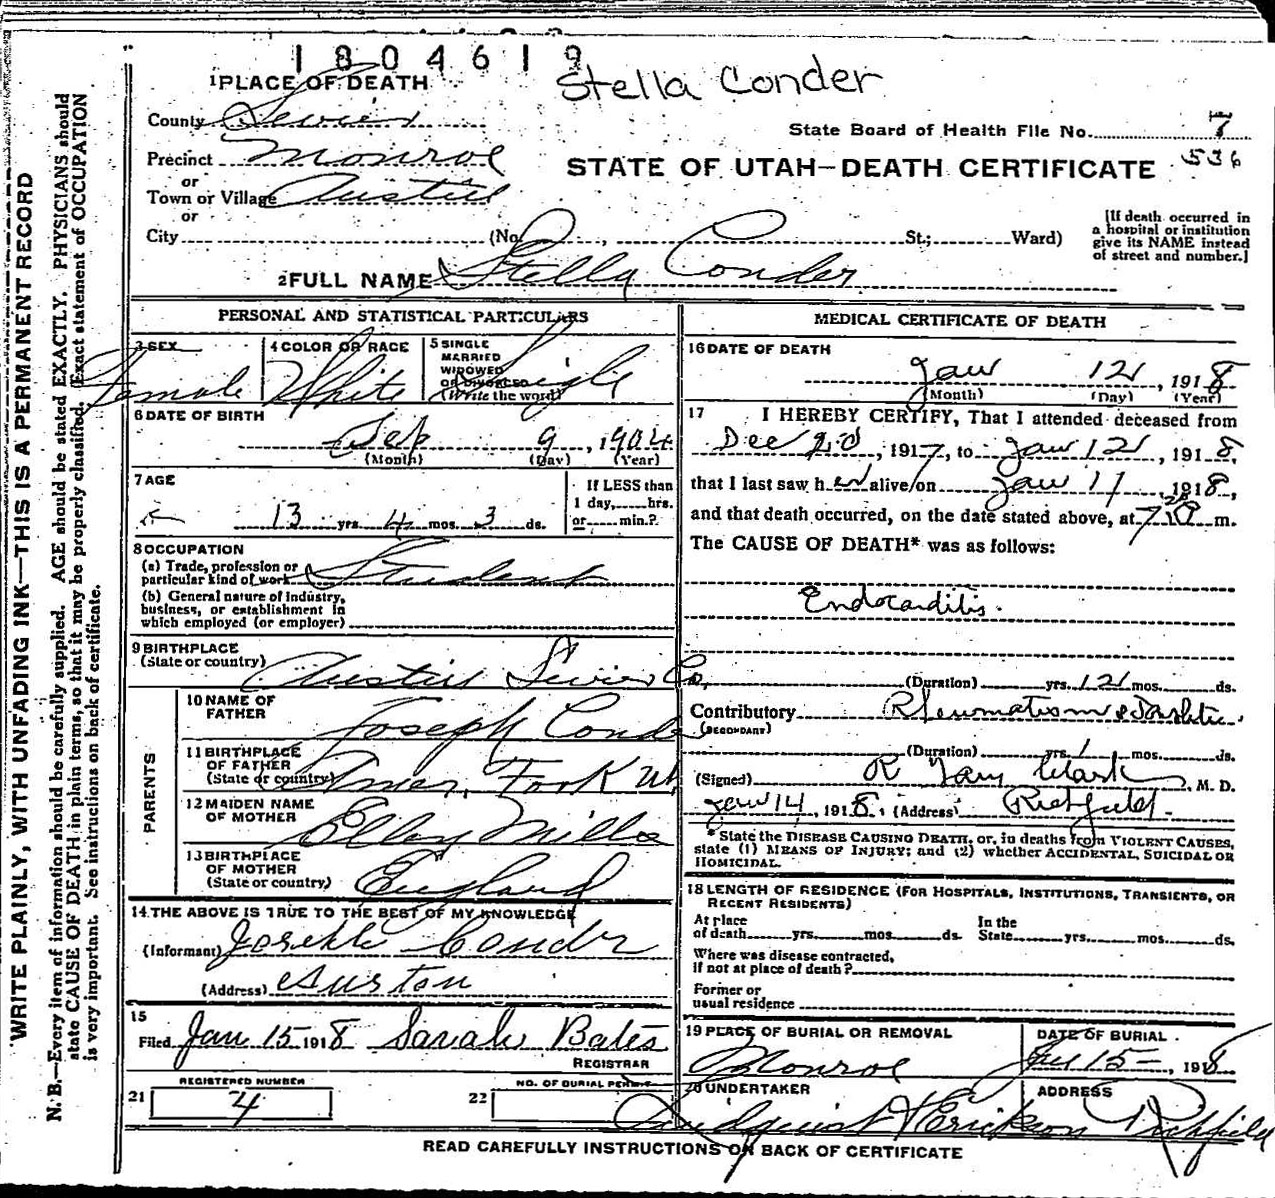 1 8 0 4 6 1 9
Stella Conder
1 PLACE OF DEATH
County Sevier
State Board of Health File No. 7
536
Precinct Monroe
STATE OF UTAH—DEATH CERTIFICATE
or
Town or Village Austin
or
City (No. , St.; Ward)
[If death occurred in
a hospital or institution
give its NAME instead
of street and number.]
2 FULL NAME Stella Conder
PERSONAL AND STATISTICAL PARTICULARS
3 SEX
Female
4 COLOR OR RACE
White
5 SINGLE
MARRIED
WIDOWED
OR DIVORCED
(Write the word)
Single
6 DATE OF BIRTH
Sep 9, 1904
(Month) (Day) (Year)
7 AGE
13 yrs. 4 mos. 3 ds.
If LESS than
1 day, hrs.
or min.?
8 OCCUPATION
(a) Trade, profession or
particular kind of work Student
(b) General nature of industry,
business, or establishment in
which employed (or employer)
9 BIRTHPLACE
(State or country) Austin Sevier Co.
PARENTS
10 NAME OF
FATHER Joseph Conder
11 BIRTHPLACE
OF FATHER
(State or country) Amer. Fork Ut
12 MAIDEN NAME
OF MOTHER Ellen Mills
13 BIRTHPLACE
OF MOTHER
(State or country) England
14 THE ABOVE IS TRUE TO THE BEST OF MY KNOWLEDGE
(Informant) Joseph Conder
(Address) Austin
15
Filed Jan 15 1918 Sarah Bates
REGISTRAR
REGISTERED NUMBER
21 4
NO. OF BURIAL PERMIT
22
MEDICAL CERTIFICATE OF DEATH
16 DATE OF DEATH
Jan 12, 1918
(Month) (Day) (Year)
17 I HEREBY CERTIFY, That I attended deceased from
Dec 20, 1917, to Jan 12, 1918,
that I last saw her alive on Jan 11, 1918,
and that death occurred, on the date stated above, at m.
The CAUSE OF DEATH* was as follows:
Endocarditis.
(Duration) yrs. mos. ds.
Contributory Rheumatism &
(SECONDARY)
(Duration) yrs. 1 mos. ds.
(Signed) R Clark, M. D.
Jan 14, 1918. (Address) Richfield.
* State the DISEASE CAUSING DEATH, or, in deaths from VIOLENT CAUSES,
state (1) MEANS OF INJURY; and (2) whether ACCIDENTAL, SUICIDAL OR
HOMICIDAL.
18 LENGTH OF RESIDENCE (FOR HOSPITALS, INSTITUTIONS, TRANSIENTS, OR
RECENT RESIDENTS)
At place
of death yrs. mos. ds.
In the
State yrs. mos. ds.
Where was disease contracted,
if not at place of death?
Former or
usual residence
19 PLACE OF BURIAL OR REMOVAL
Monroe
DATE OF BURIAL
Jan 15, 1918
20 UNDERTAKER
Lindquist & Erickson
ADDRESS
Richfield
READ CAREFULLY INSTRUCTIONS ON BACK OF CERTIFICATE
WRITE PLAINLY, WITH UNFADING INK—THIS IS A PERMANENT RECORD
N. B.—Every item of information should be carefully supplied. AGE should be stated EXACTLY. PHYSICIANS should
state CAUSE OF DEATH in plain terms, so that it may be properly classified. Exact statement of OCCUPATION
is very important. See instructions on back of certificate.